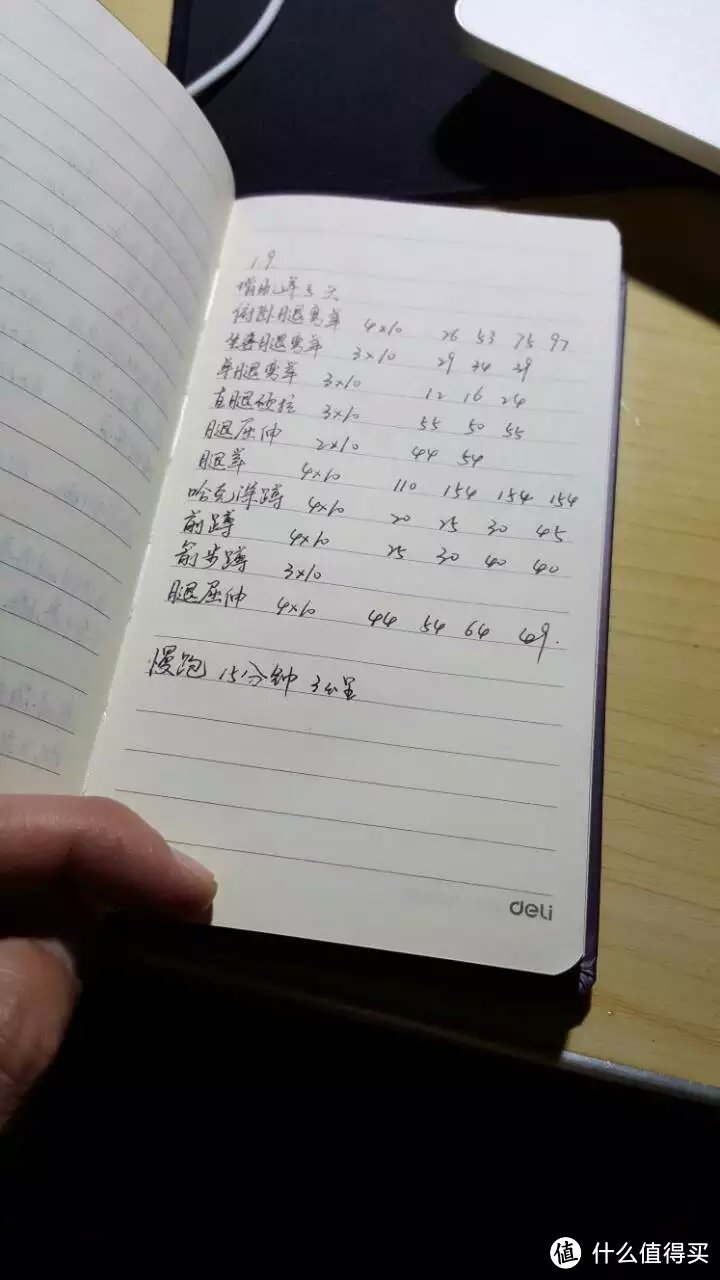 19
增肌3单5天
俯卧腿弯举 4×10 26 53 75 97
坐姿腿弯举 3×10 29 34 39
单腿弯举 3×10 12 16 24
直腿硬拉 3×10 55 50 55
腿屈伸 2×10 44 54
腿举 4×10 110 154 154 154
哈克深蹲 4×10 20 25 30 45
前蹲 4×10 25 30 40 40
箭步蹲 3×10
腿屈伸 4×10 44 54 64 49.
慢跑 15分钟 3公里
deli
值 什么值得买